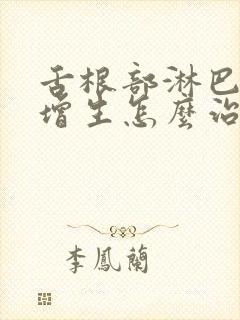 舌根部淋巴
增生怎麼治
李鳳蘭